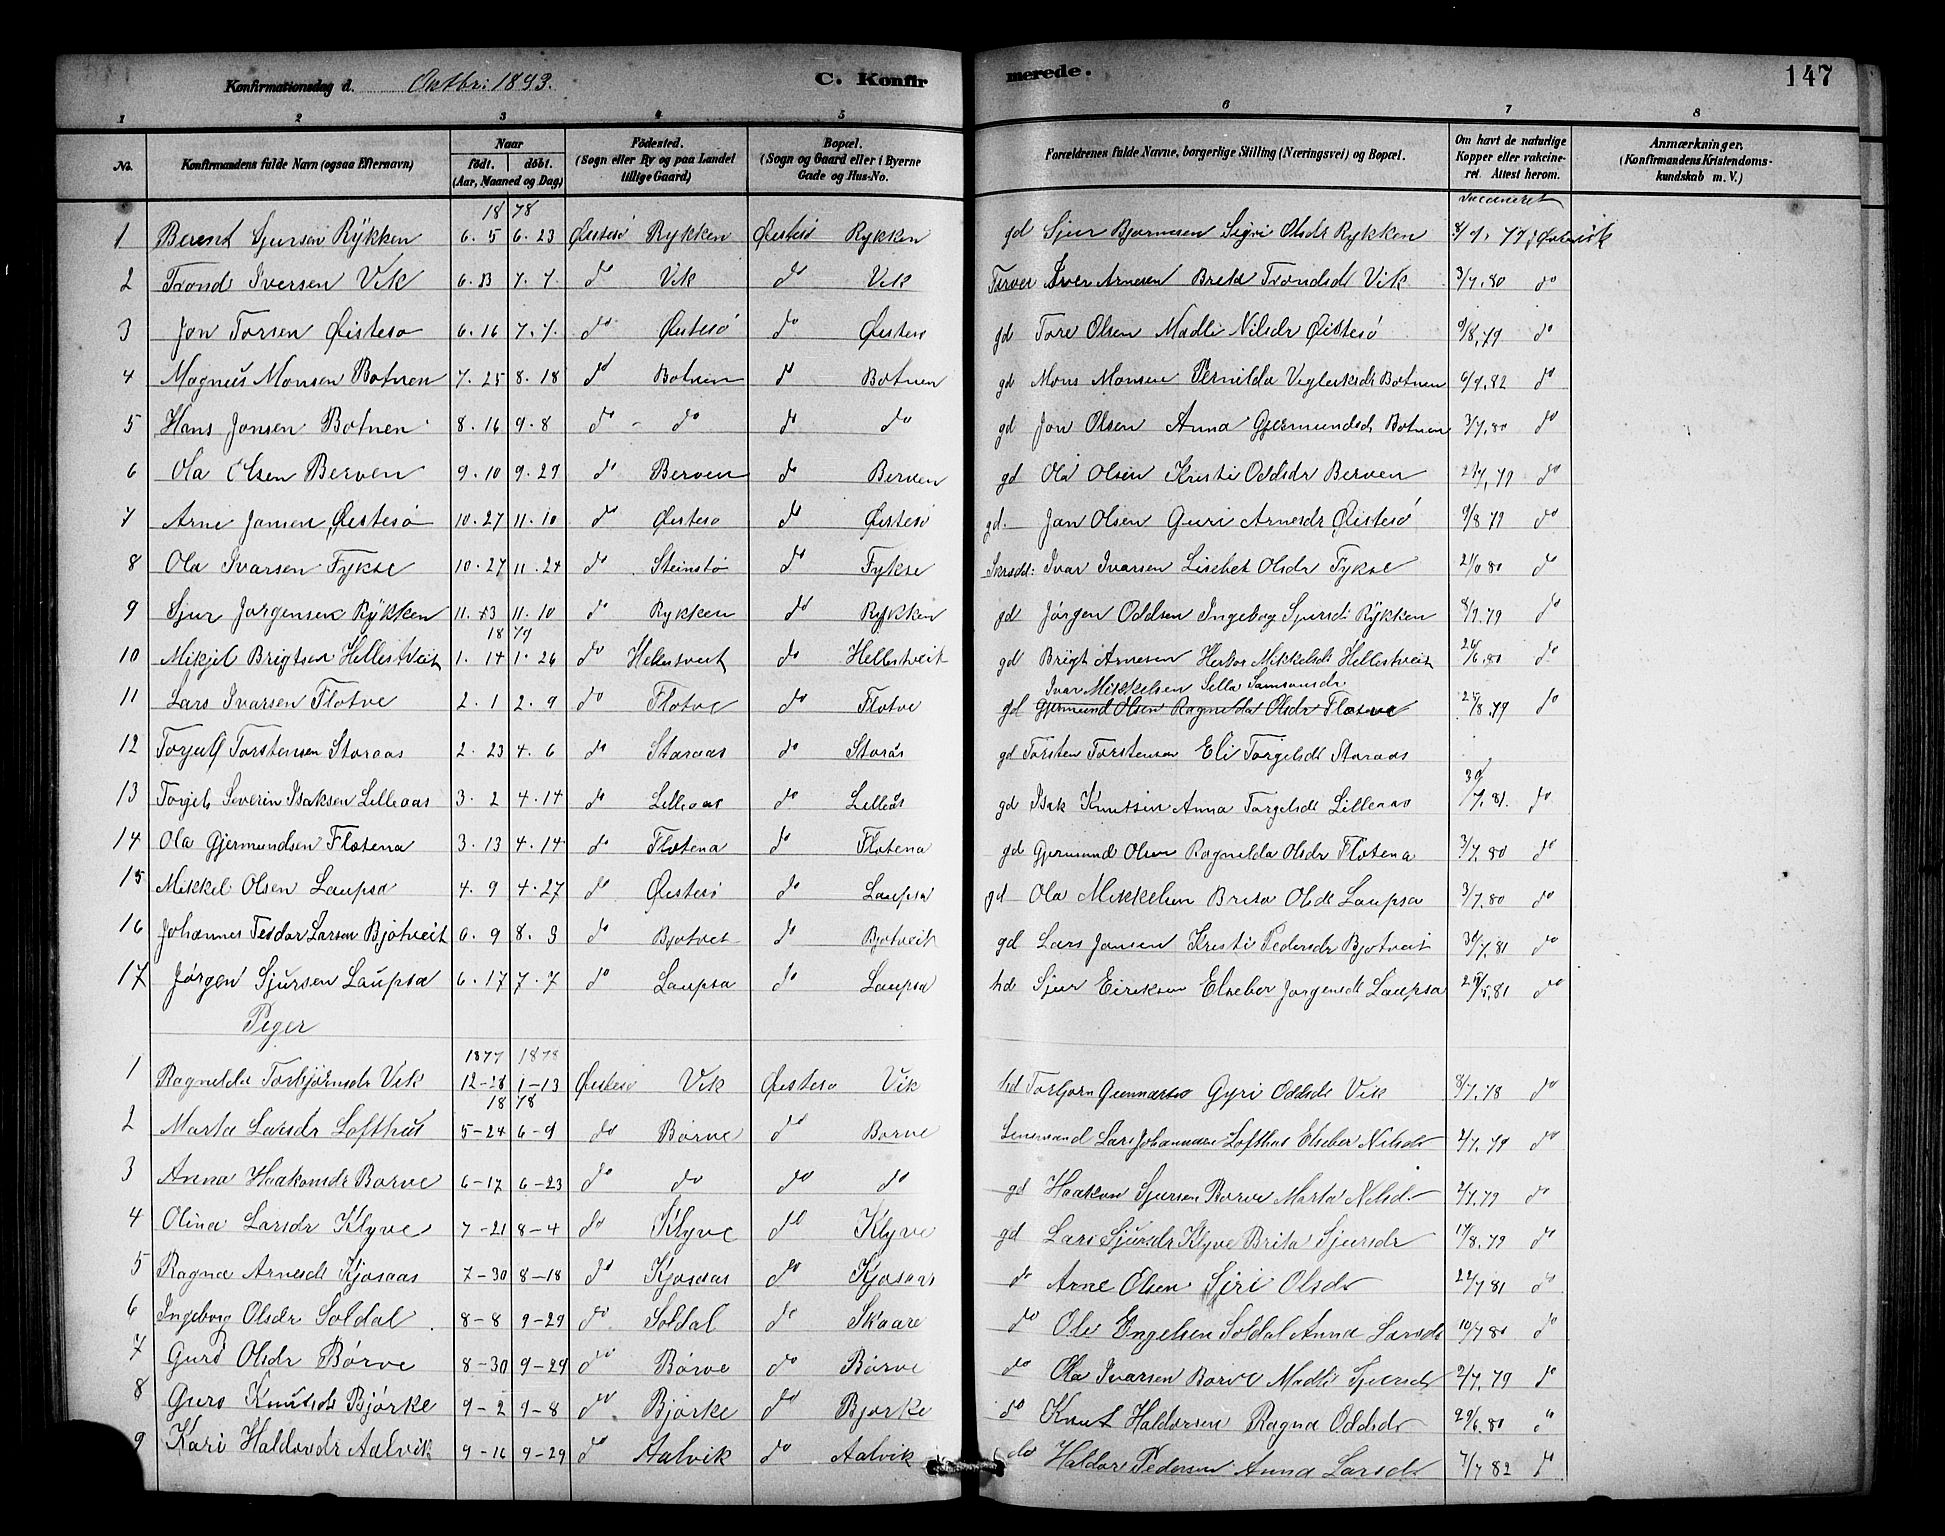 Konfirmationsdag d. Oktbr. 1893. C. Konfirmerede. 147
1 2 3 4 5 6 7 8
No. Konfirmandens fulde Navn (ogsaa Efternavn) Naar født. døbt. (Aar, Maaned og Dag) Fødested. (Sogn eller By og paa Landet tillige Gaard) Bopæl. (Sogn og Gaard eller i Byerne Gade og Hus-No. Forældrenes fulde Navne, borgerlige Stilling (Næringsvei) og Bopæl. Om havt de naturlige Kopper eller vakcineret. Attest herom. Anmærkninger. (Konfirmandens Kristendomskundskab m. V.)
18 78 Vaccineret
1 Berent Sjursen Rykken 6. 5 6. 23 Øistesø Rykken Øistesø Rykken gd Sjur Bjørnesen Sigri Olsdr Rykken
2 Trond Iversen Vik 6. 13 7. 7 do Vik do Vik Farver Iver Arnesen Brita Trondsdr Vik 3/7. 80 do
3 Jon Torsen Øistesø 6. 16 7. 7. do Øistesø do Øistesø gd Tore Olsen Madli Nilsdr Øistesø 9/8. 79 do
4 Magnus Monsen Botnen 7. 25 8. 18 do Botnen do Botnen gd Mons Monsen Pernilda Botnen 6/9. 82 do
5 Hans Jonsen Botnen 8. 16 9. 8 do - do do do gd Jon Olsen Anna Gjermundsd Botnen 3/7. 80 do
6 Ola Olsen Berven 9. 10 9. 29 do Berven do Berven gd Ola Olsen Kristi Oddsdr Berven do
7 Arne Jansen Øistesø 10. 27 11. 10 do Øistesø do Øistesø gd. Jan Olsen Guri Arnesdr Øistesø 9/8 79 do
8 Ola Ivarsen Fykse 10. 27 11. 24 do Steinstø do Fykse Ivar Ivarsen Lisebet Olsdr Fykse do
9 Sjur Jørgensen Rykken 11. 3 11. 10 do Rykken do Rykken gd Jørgen Oddsen Ingeborg Sjursd Rykken 8/9. 79 do
18 79
10 Mikjel Brigtsen Hellestveit 1. 14 1. 26 do Hellestveit do Hellestveit gd Brigt Arnesen Mikkelsdr Hellestveit 26/6. 80 do
Ivar Mikkelsen Sella Samsonsdr
11 Lars Ivarsen Flotve 2. 1 2. 9 do Flotve do Flotve gd Gjermund Olsen Ragnilda Olsdr Flotve 25/8. 79 do
12 Torjulf Torstensen Storaas 2. 23 4. 6 do Storaas do Storås gd Torsten Torstensen Eli Torgelsdr Storaas
13 Torjels Severin Isaksen Lilleaas 3. 2 4. 14 do Lilleaas do Lilleås gd Isak Knutsen Anna Torgelsdr Lilleaas 30/7. 81. do
14 Ola Gjermundsen Flotena 3. 13 4. 14 do Flotena do Flotena gd Gjermund Olsen Ragnilda Olsdr Flotena 3/7. 80 do
15 Mikkel Olsen Laupsa 4. 9 4. 27 do Øistesø do Laupsa gd Ola Mikkelsen Brita Olsdr Laupsa 3/7. 80 do
16 Johannes Larsen Bjotveit 6. 9 8. 3 do Bjotveit do Bjotveit gd Lars Jansen Kristi Pedersdr Bjotveit 30/7. 81 do
17 Jørgen Sjursen Laupsa 6. 17 7. 7 do Laupsa do Laupsa hd Sjur Eiriksen Elseber Jørgensdr Laupsa do
Piger
1877 1878
1 Ragnilda Torbjørnsdr Vik 12-28 1-13 Øistesø Vik Øistesø Vik hd Torbjørn Gunnarsen Gyri Oddsdr Vik 8/7. 78 do
18 78
2 Marta Larsdr Lofthus 5-24 6-9 do Børve do Børve Lensmand Lars Johannesen Lofthus Elseber Nilsdr 2/7. 79 do
3 Anna Haakonsdr Børve 6-17 6-23 do do do do gd Haakon Sjursen Børve Marta Nilsdr 2/7. 79 do
4 Olina Larsdr Klyve 7-21 8-4 do Klyve do Klyve gd Lars Sjursdr Klyve Brita Sjursdr 19/8. 79 do
5 Ragna Arnesdr Kjosaas 7-30 8-18 do Kjosaas do Kjosaas do Arne Olsen Siri Olsdr 22/7 81 do
6 Ingeborg Olsdr Soldal 8-8 9-29 do Soldal do Skaare do Ole Engelsen Soldal Anna Larsdr 10/7 80 do
7 Guro Olsdr Børve 8-30 9-29 do Børve do Børve do Ola Ivarsen Børve Madli Sjursdr 2/7. 79 do
8 Guro Knutsdr Bjørke 9-2 9-8 do Bjørke do Bjørke do Knut Haldorsen Ragna Oddsdr 29/6. 80 do
9 Kari Haldorsdr Aalvik 9-16 9-29 do Aalvik do Aalvik do Haldor Pedersen Anna Larsdr 7/7 82 do